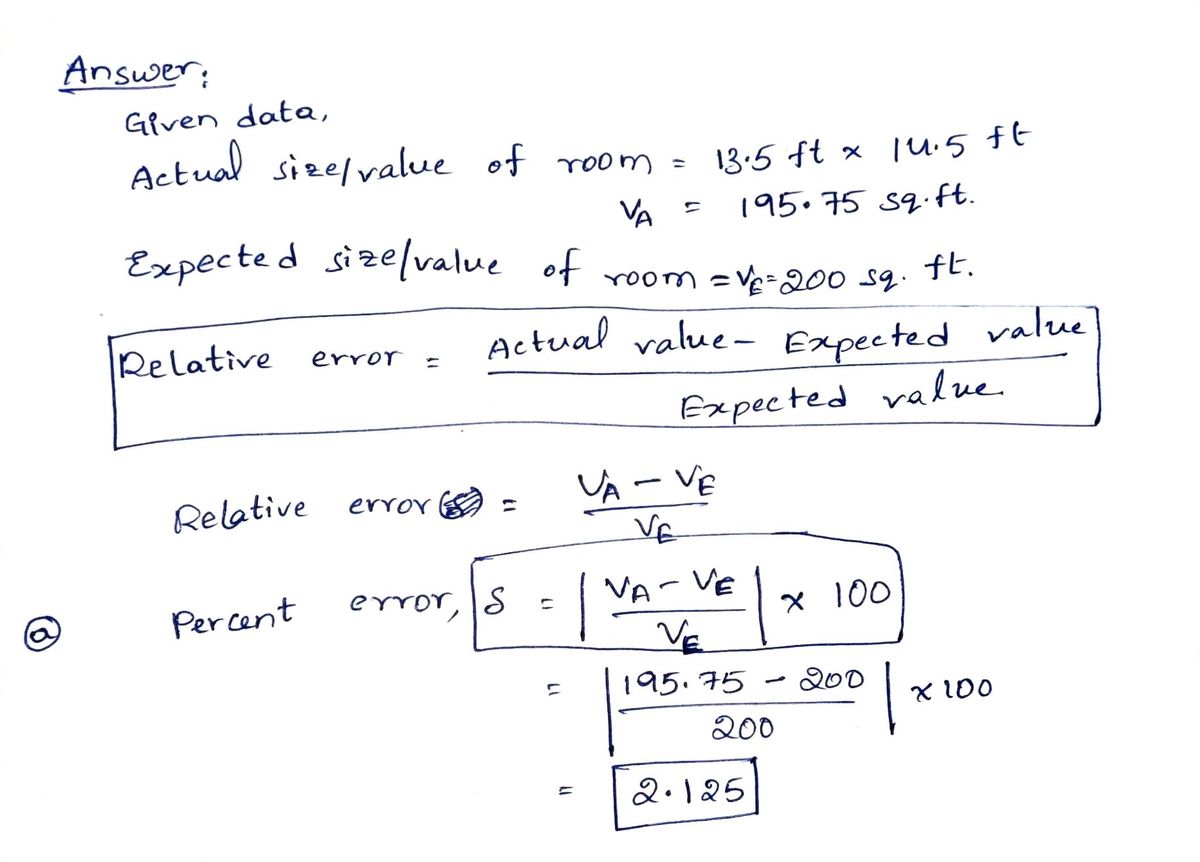 Answer:
Given data,
Actual size/value of room = 13.5 ft × 14.5 ft
VA = 195.75 sq.ft.
Expected size/value of room = VE = 200 sq. ft.
Relative error = Actual value - Expected value
Expected value
Relative error = VA - VE
VE
ⓐ Percent error, δ = | VA - VE / VE | × 100
= | 195.75 - 200 / 200 | × 100
= 2.125